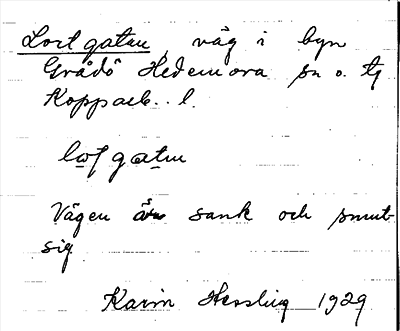 Lortgatan, väg i byn
Grådö Hedemora sn o. tg
Kopparb. l.
lo̲ʃga̲tan
Vägen är sank och smut-
sig.
Karin Hessling 1929